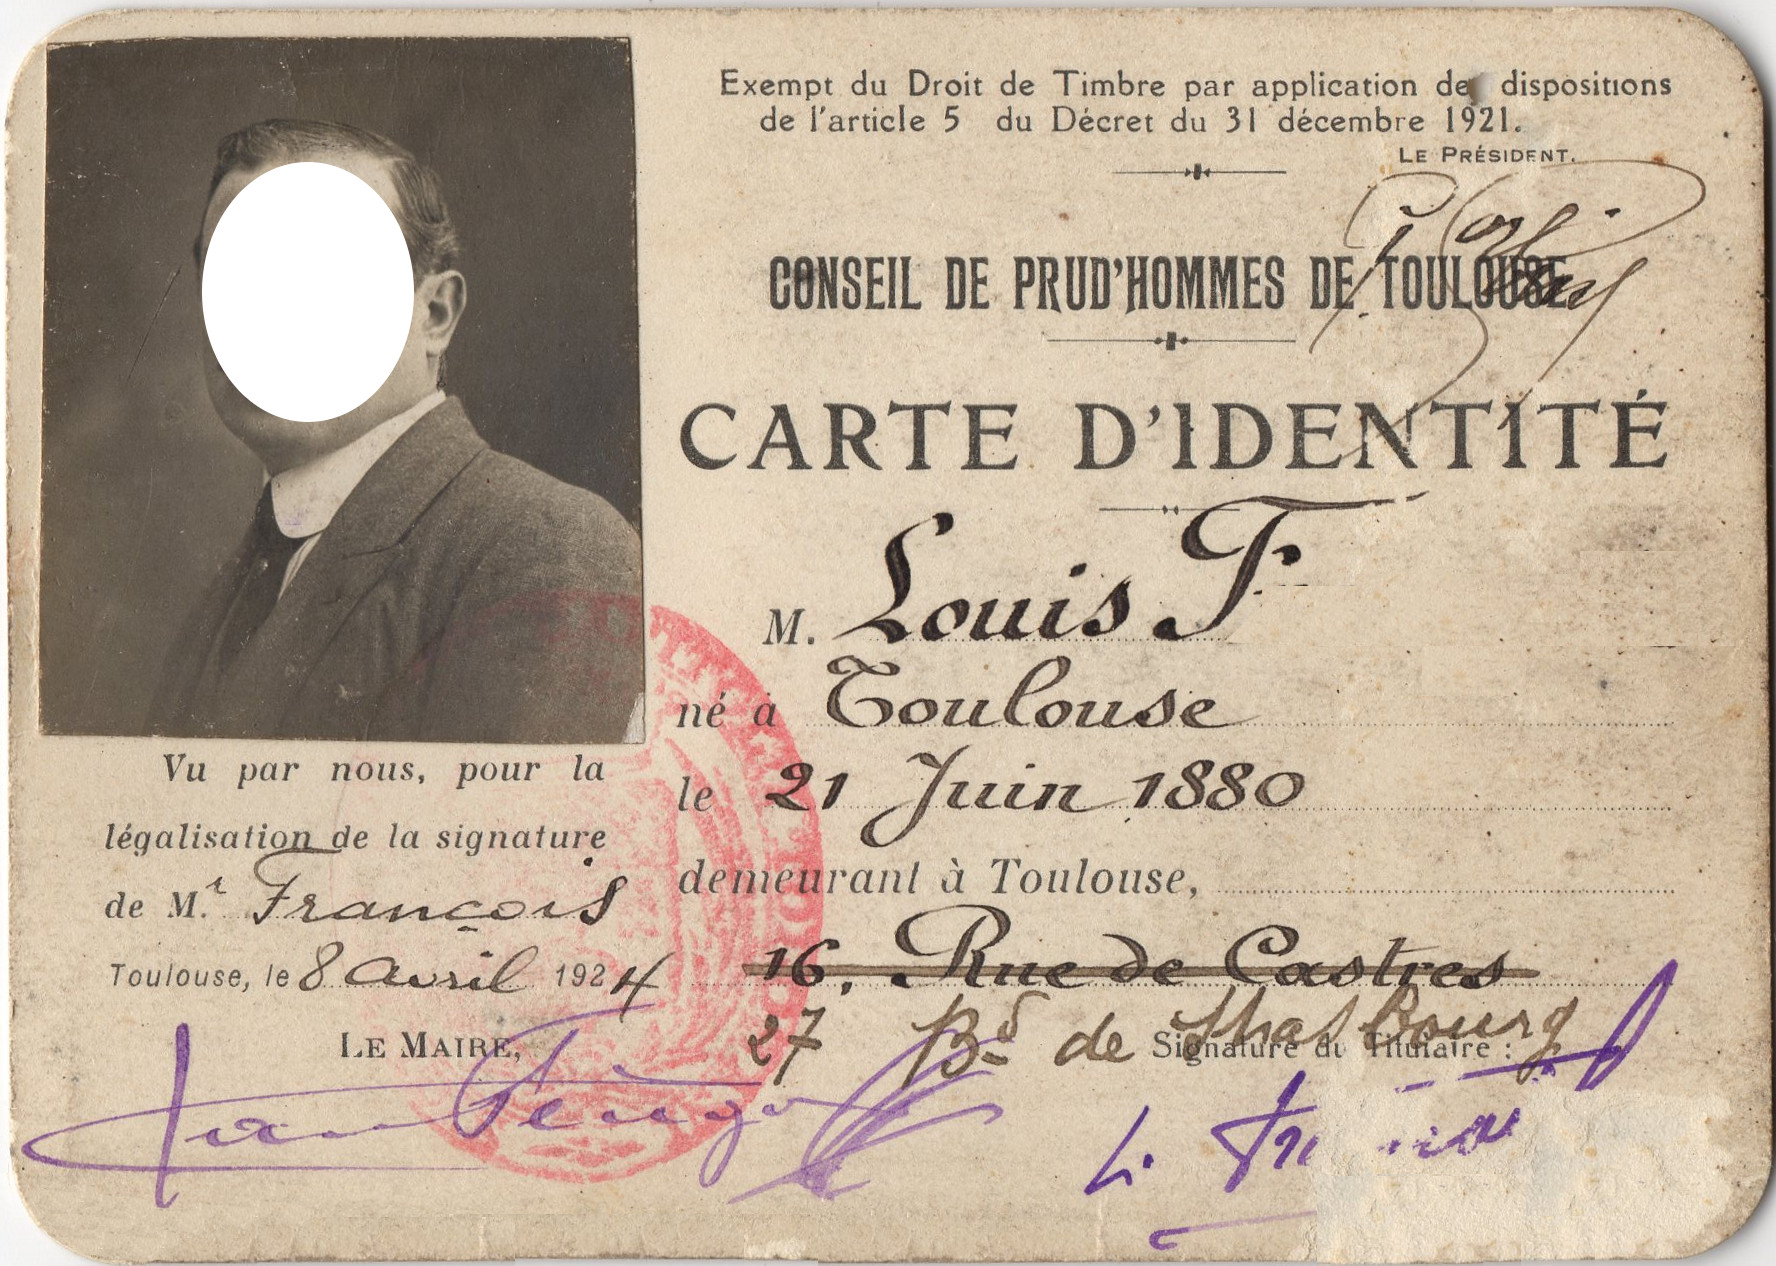 Exempt du Droit de Timbre par application des dispositions
de l'article 5 du Décret du 31 décembre 1921.
LE PRÉSIDENT.
CONSEIL DE PRUD'HOMMES DE TOULOUSE
CARTE D'IDENTITÉ
M. Louis F
né à Toulouse
le 21 Juin 1880
demeurant à Toulouse,
16, Rue de Castres
27 Bd de Strasbourg
Signature du Titulaire :
L.
Vu par nous, pour la
légalisation de la signature
de M.r François
Toulouse, le 8 avril 1924
LE MAIRE,